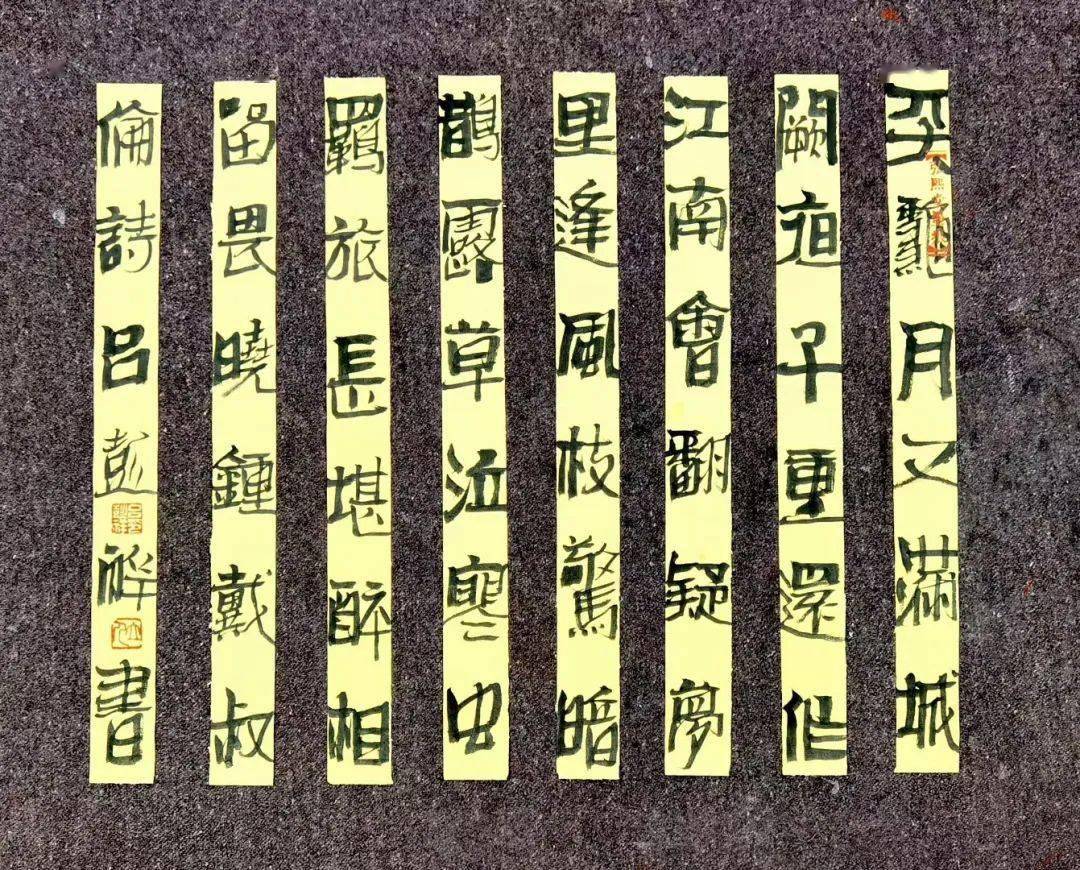 天龝月又滿城
闕夜千重還作
江南會翻疑夢
里逢風枝驚暗
鵲露草泣寒虫
羈旅長堪醉相
留畏曉鍾戴叔
倫詩呂彭祥書